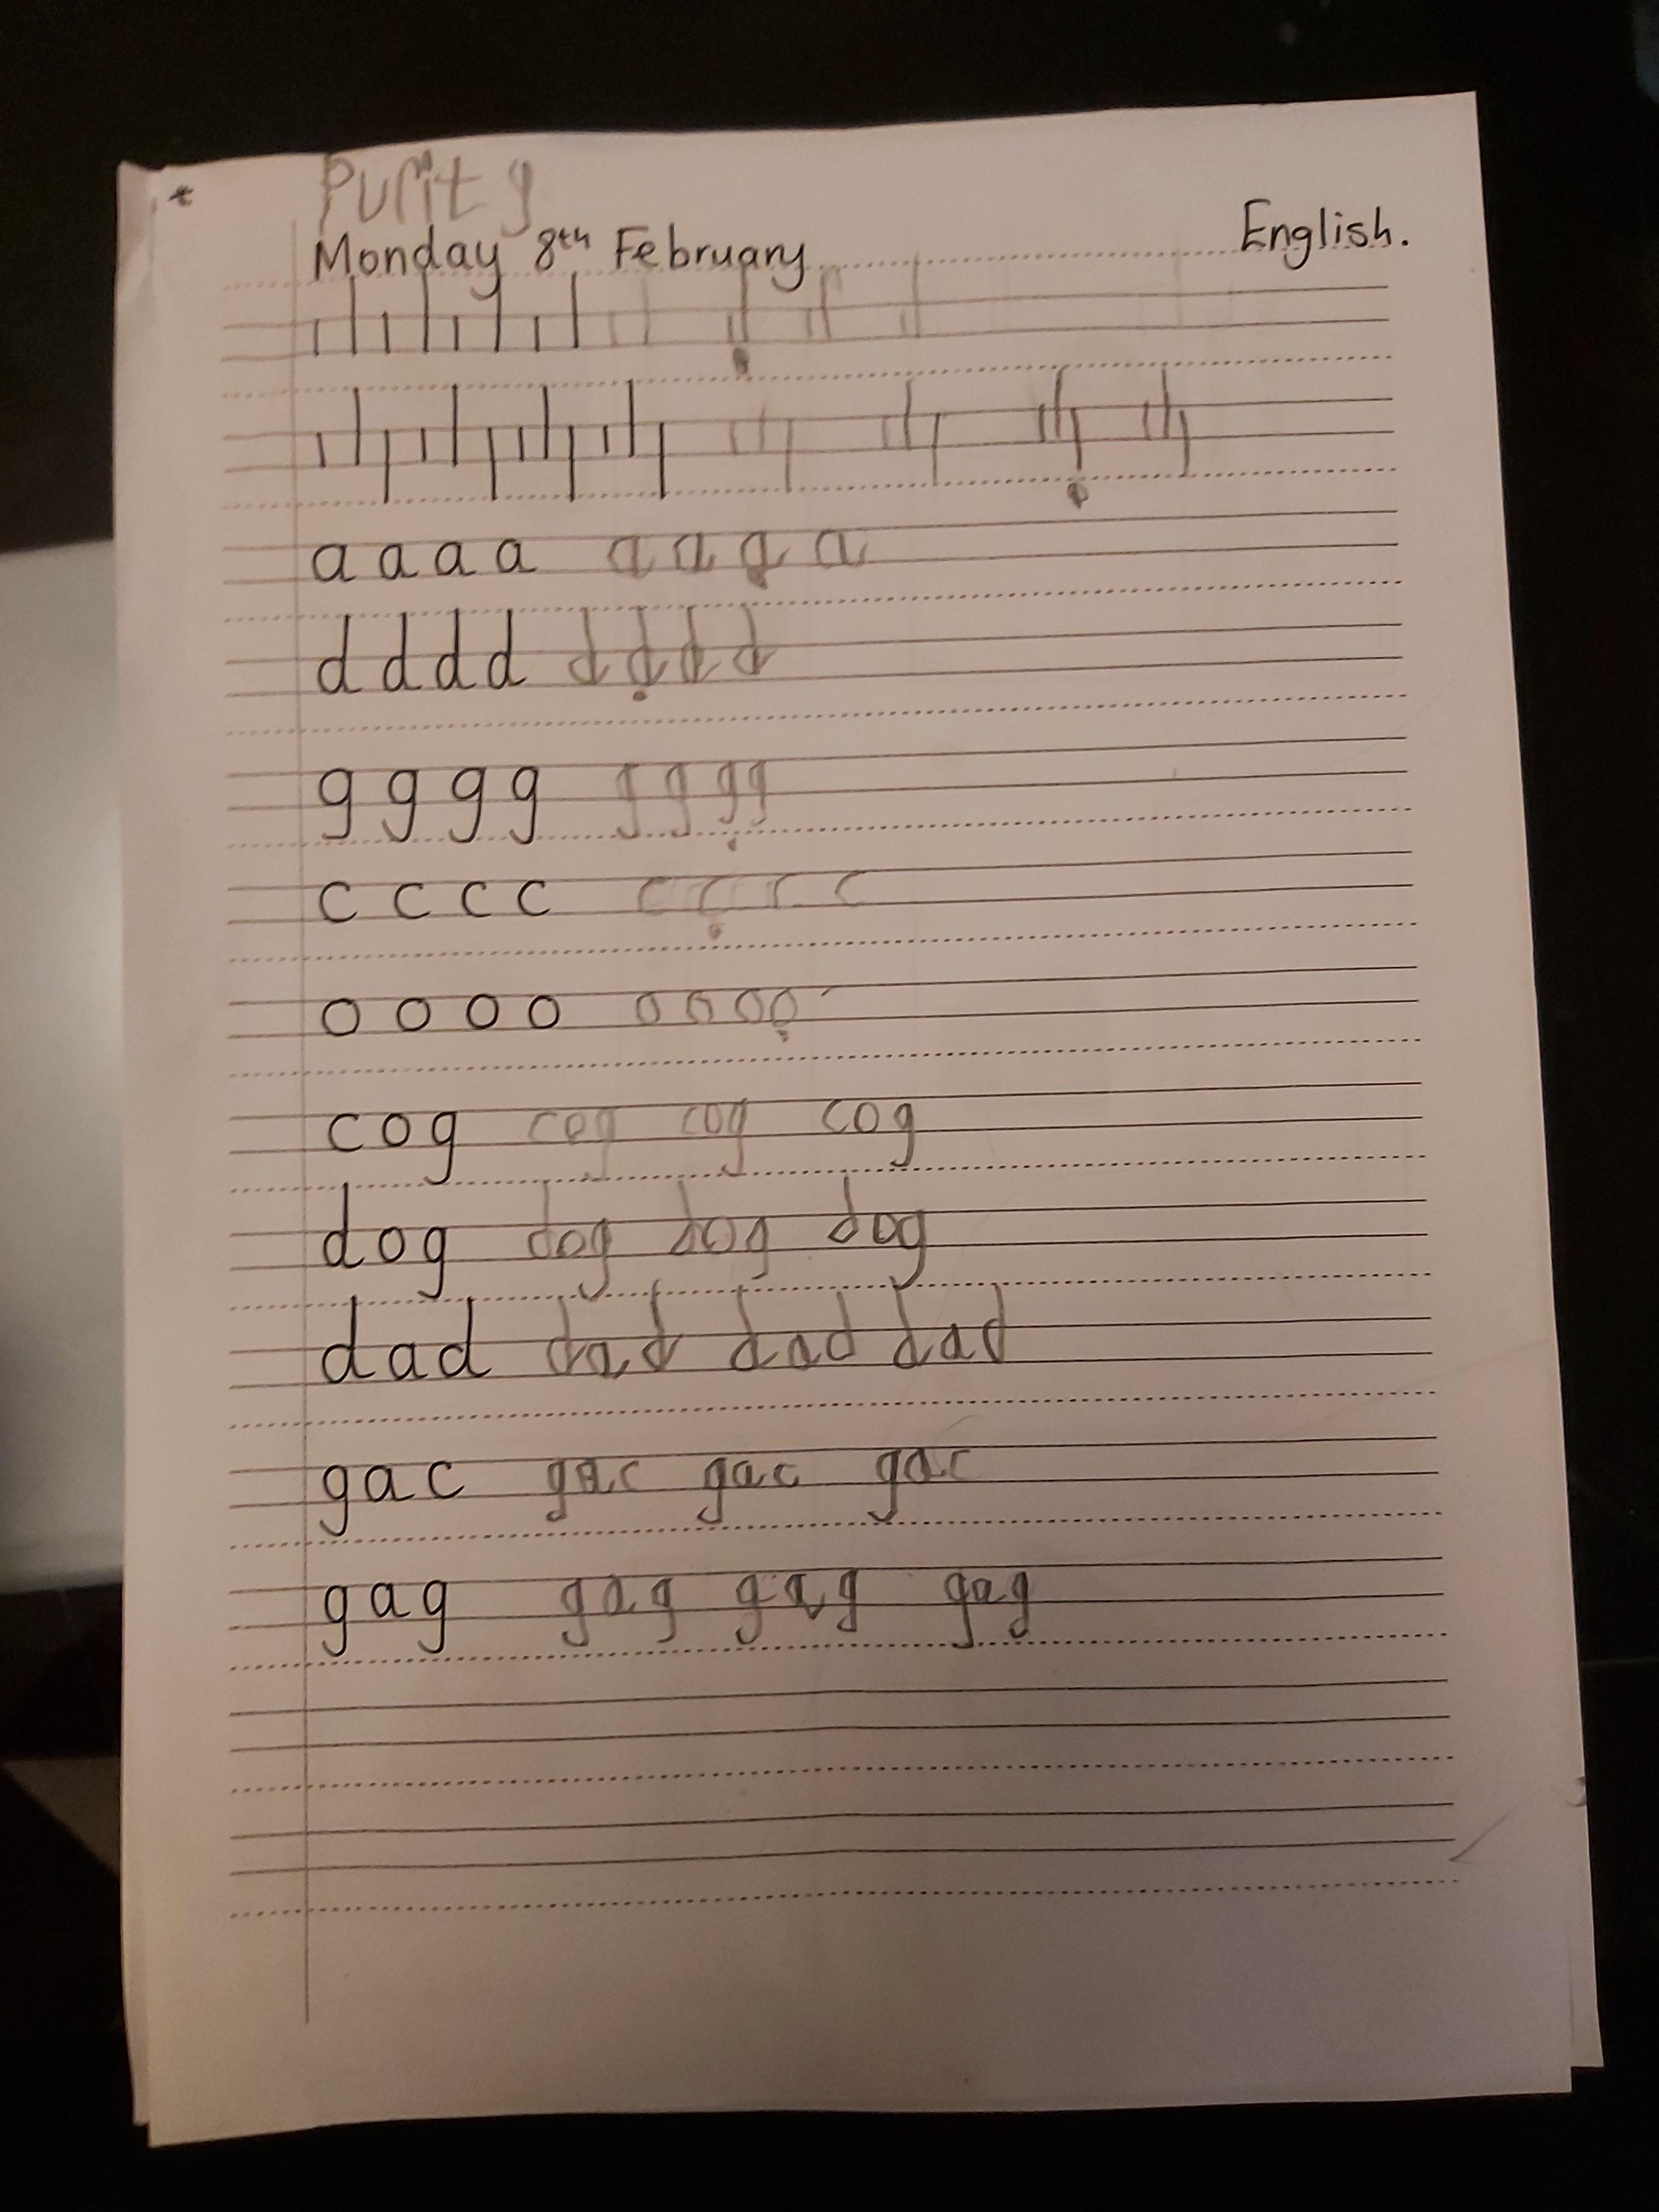 Purity
Monday 8th February English.
a a a a a a a a
d d d d d d d d
g g g g g g g g
c c c c c c c c
o o o o o o o o
cog cog cog cog
dog dog dog dog
dad dad dad dad
gac gac gac gac
gag gag gag gag